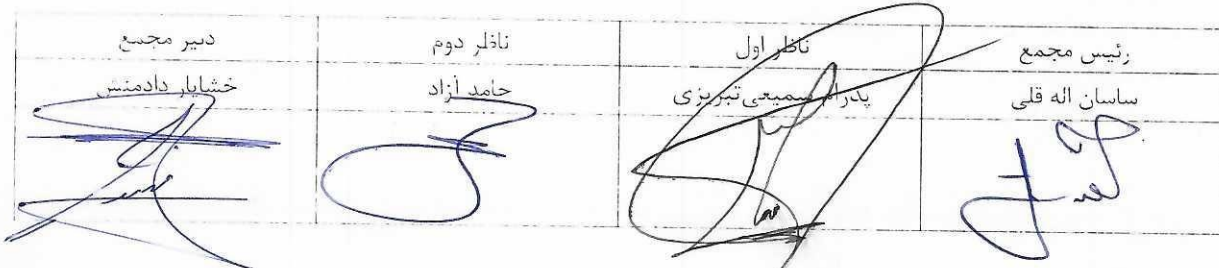 رئیس مجمع ناظر اول ناظر دوم دبیر مجمع
ساسان اله قلی پدرام سمیعی تبریزی حامد آزاد خشایار دادمنش